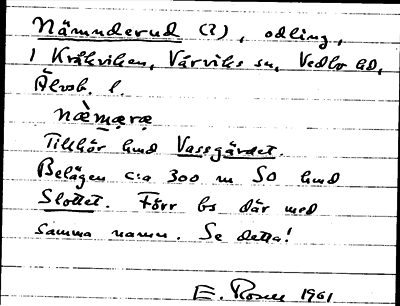 Nämnderud (?), odling,
i Kråkviken, Värviks sn, Vedbo hd,
Älvsb. l.
næ̀mæræ
Tillhör hmd Vassgärdet.
Belägen c:a 300 m SO hmd
Slottet. Förr bs där med
samma namn. Se detta!
E. Rosen 1961